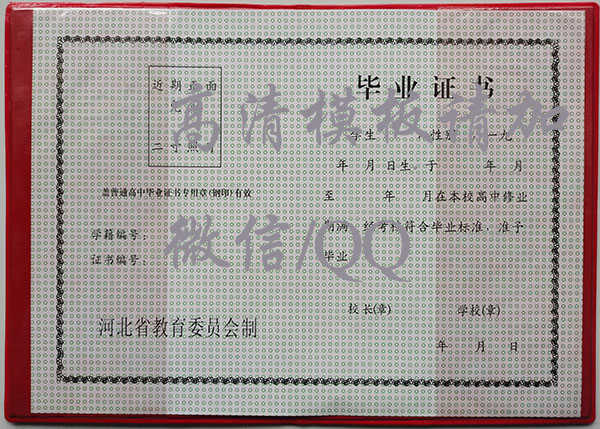 近期正面
二寸照片
盖普通高中毕业证书专用章(钢印)有效
学籍编号:
证书编号:
河北省教育委员会制
毕业证书
学生 性别 一九
年 月 日生,于 年 月
至 年 月在本校高中修业
期满,经考核符合毕业标准,准予
毕业
校长(章) 学校(章)
年 月 日
高清模板请加
微信/QQ